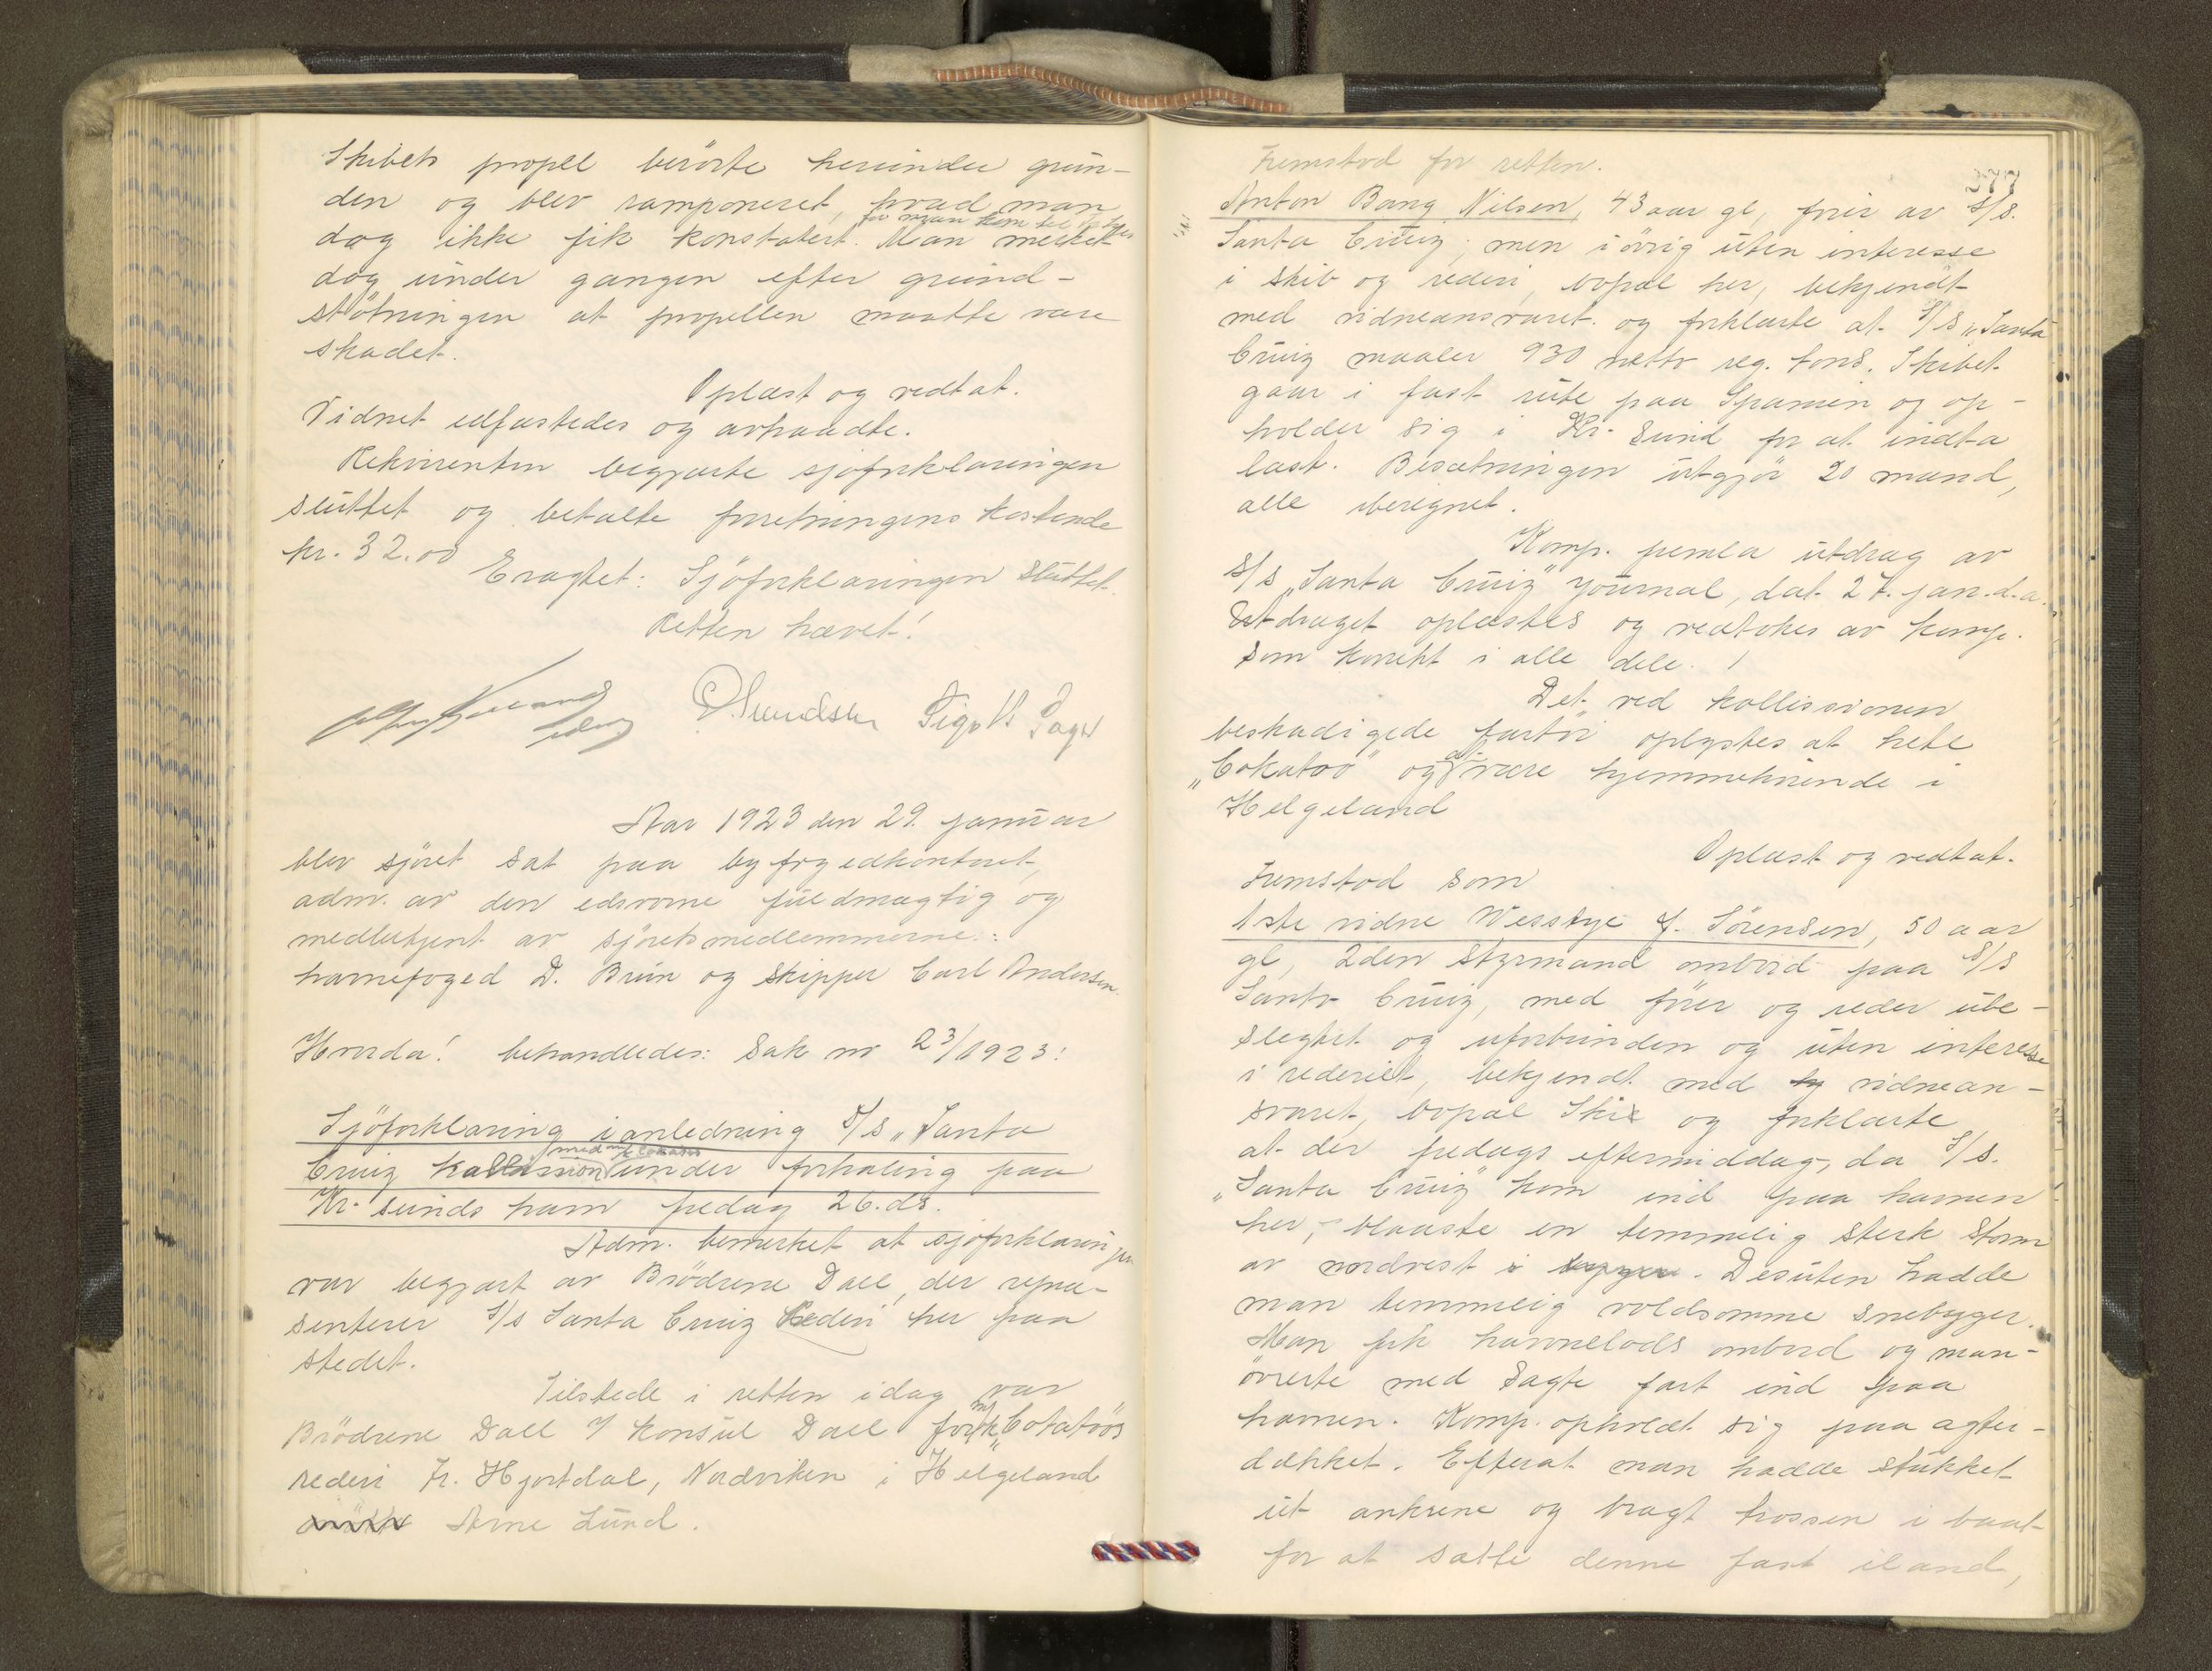 Skibets propel berörte herunder grun-
den og blev ramponeret, hvad man
for man kom til
dog ikke fik konstatert. Man merket
dog under gangen efter grund-
stötningen at propellen maatte være
skadet.
Oplæst og vedtat.
Vidnet edfæstedes og avhaadte.
Rekvirenten begjærte sjöforklaringen
sluttet og betalte forretningens kostende
kr. 32.00
Eragtet: Sjöforklaringen sluttet.
Retten hævet!
Aar 1923 den 29. januar
blev sjöret sat paa byfogedkontoret,
adm. av den edsvorne fuldmægtig og
medbetjent av sjöretsmedlemmerne:
havnefoged D. Bruun og skipper Carl Andersen.
Hvorda! behandledes: Sak nr 23/1923:
Sjöforklaring i anledning S/S „Santa
Cruz kollission med under forhaling paa
Kr.sunds havn fredag 26. ds.
Adm. bemerket at sjöforklaringen
var begjært av Brödrene Dall, der repræ-
senterer S/S Santa Cruz Rederi her paa
stedet.
Tilstede i retten idag var
Brödrene Dall v/ konsul Dall for m/k „Cokatoos
rederi Fr. Hjortdal, Nordviken i Helgeland
Arne Lund.
377
Fremstod for retten.
Anton Bang Nilsen, 43 aar gl, förer av S/S.
Santa Cruz, men iövrig uten interesse
i skib og rederi, bopæl her, bekjendt
med vidneansvaret og forklarte at S/S „Santa
Cruz maaler 930 netto reg. tons. Skibet
gaar i fast rute paa Spanien og op-
holder sig i Kr.sund for at indta
last. Besætningen utgjör 20 mand,
alle iberegnet.
Komp. fremla utdrag av
S/S „Santa Cruz" journal, dat. 27. jan. d.a.
Utdraget oplæstes og vedtokes av komp.
som korrekt i alle dele.
Det ved kollissionen
beskadigede fartöi oplystes at hete
„Cokatoo" og at være hjemmehörende i
Helgeland
Oplæst og vedtat.
Fremstod som
1ste vidne Wesstye J. Sörensen, 50 aar
gl, 2den styrmand ombord paa S/S
Santa Cruz, med förer og reder ube-
slegtet og uforbunden og uten interesse
i rederiet, bekjendt med vidnean-
svaret, bopæl Ski og forklarte
at der fredags eftermiddag, da S/S.
„Santa Cruz" kom ind paa havnen
her, blaaste en temmelig sterk storm
av nordvest. Desuten hadde
man temmelig voldsomme snebyger.
Man fik havnelods ombord og man-
övrerte med sagte fart ind paa
havnen. Komp. opholdt sig paa agter-
dækket. Efterat man hadde stukket
ut ankrene og bragt trossen i baat
for at sætte denne fast iland,